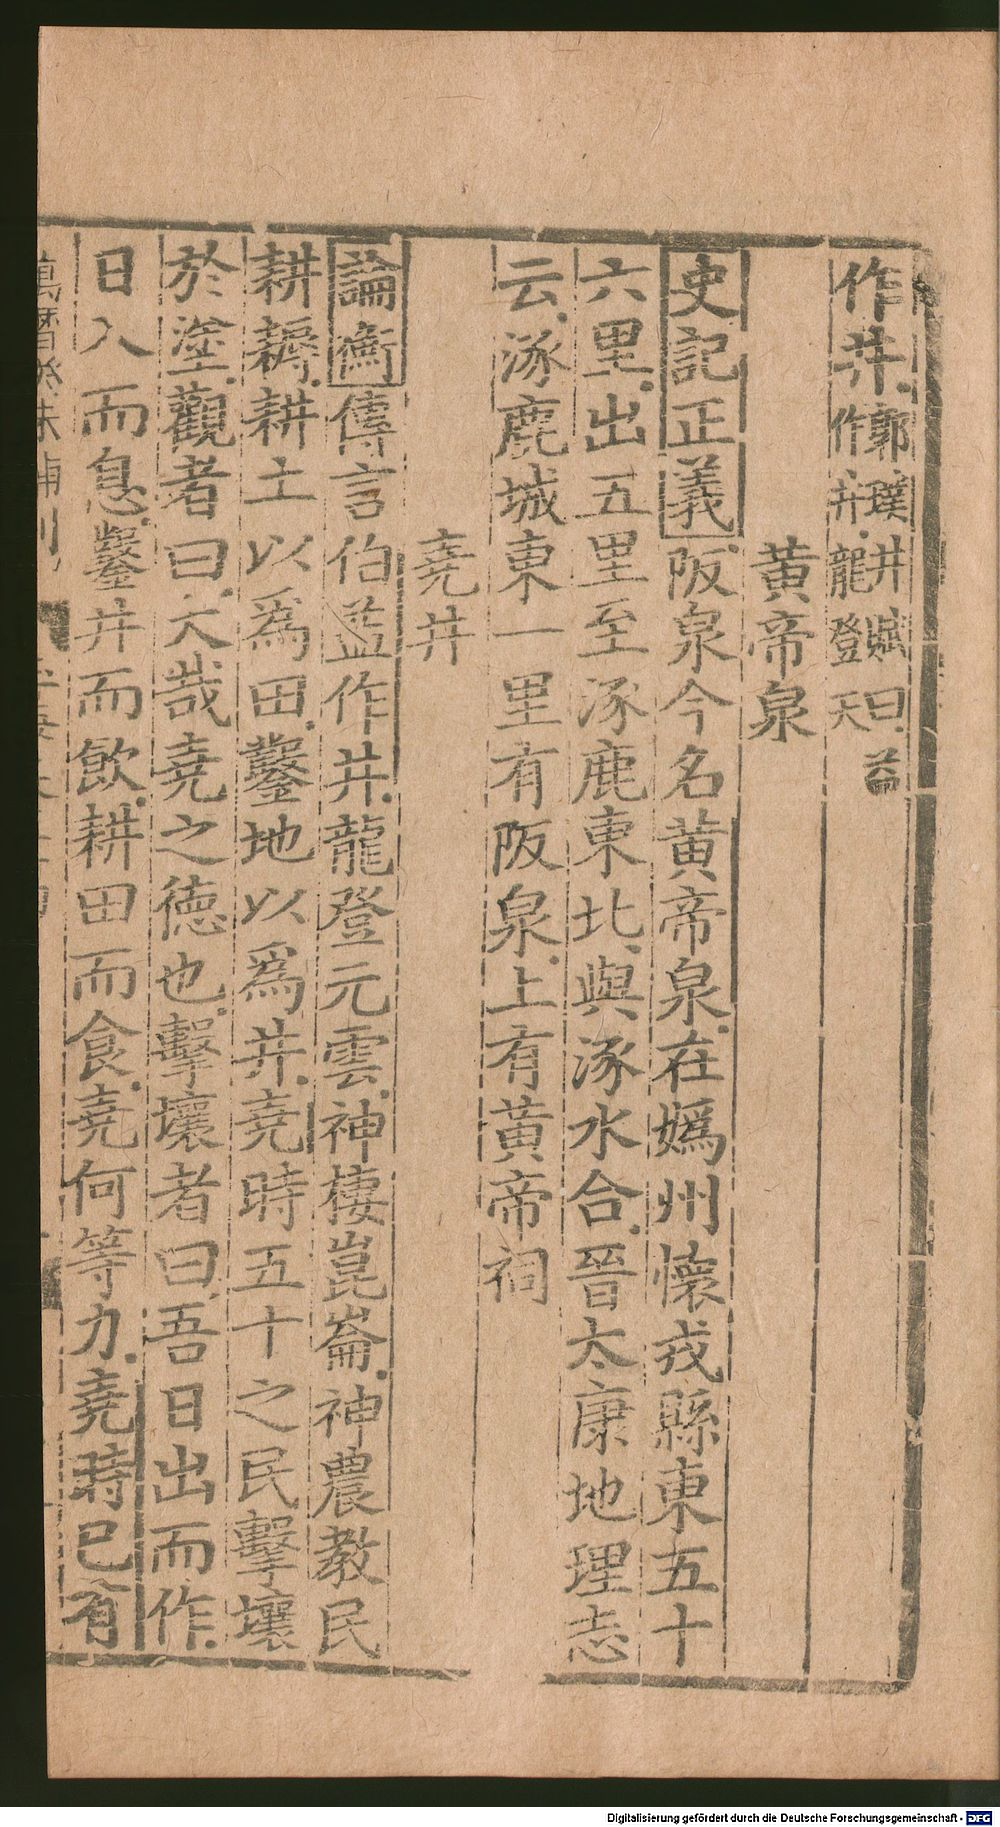 作井郭璞井賦曰益
作井龍登天
黃帝泉
史記正義阪泉今名黃帝泉在嬀州懷戎縣東五十
六里出五里至涿鹿東北與涿水合晉太康地理志
云涿鹿城東一里有阪泉上有黃帝祠
堯井
論衡傳言伯益作井龍登元雲神棲崑崙神農教民
耕耨耕土以爲田鑿地以爲井堯時五十之民擊壤
於塗觀者曰大哉堯之德也擊壤者曰吾日出而作
日入而息鑿井而飲耕田而食堯何等力堯時已有
萬曆癸未補刊
Digitalisierung gefördert durch die Deutsche Forschungsgemeinschaft - DFG